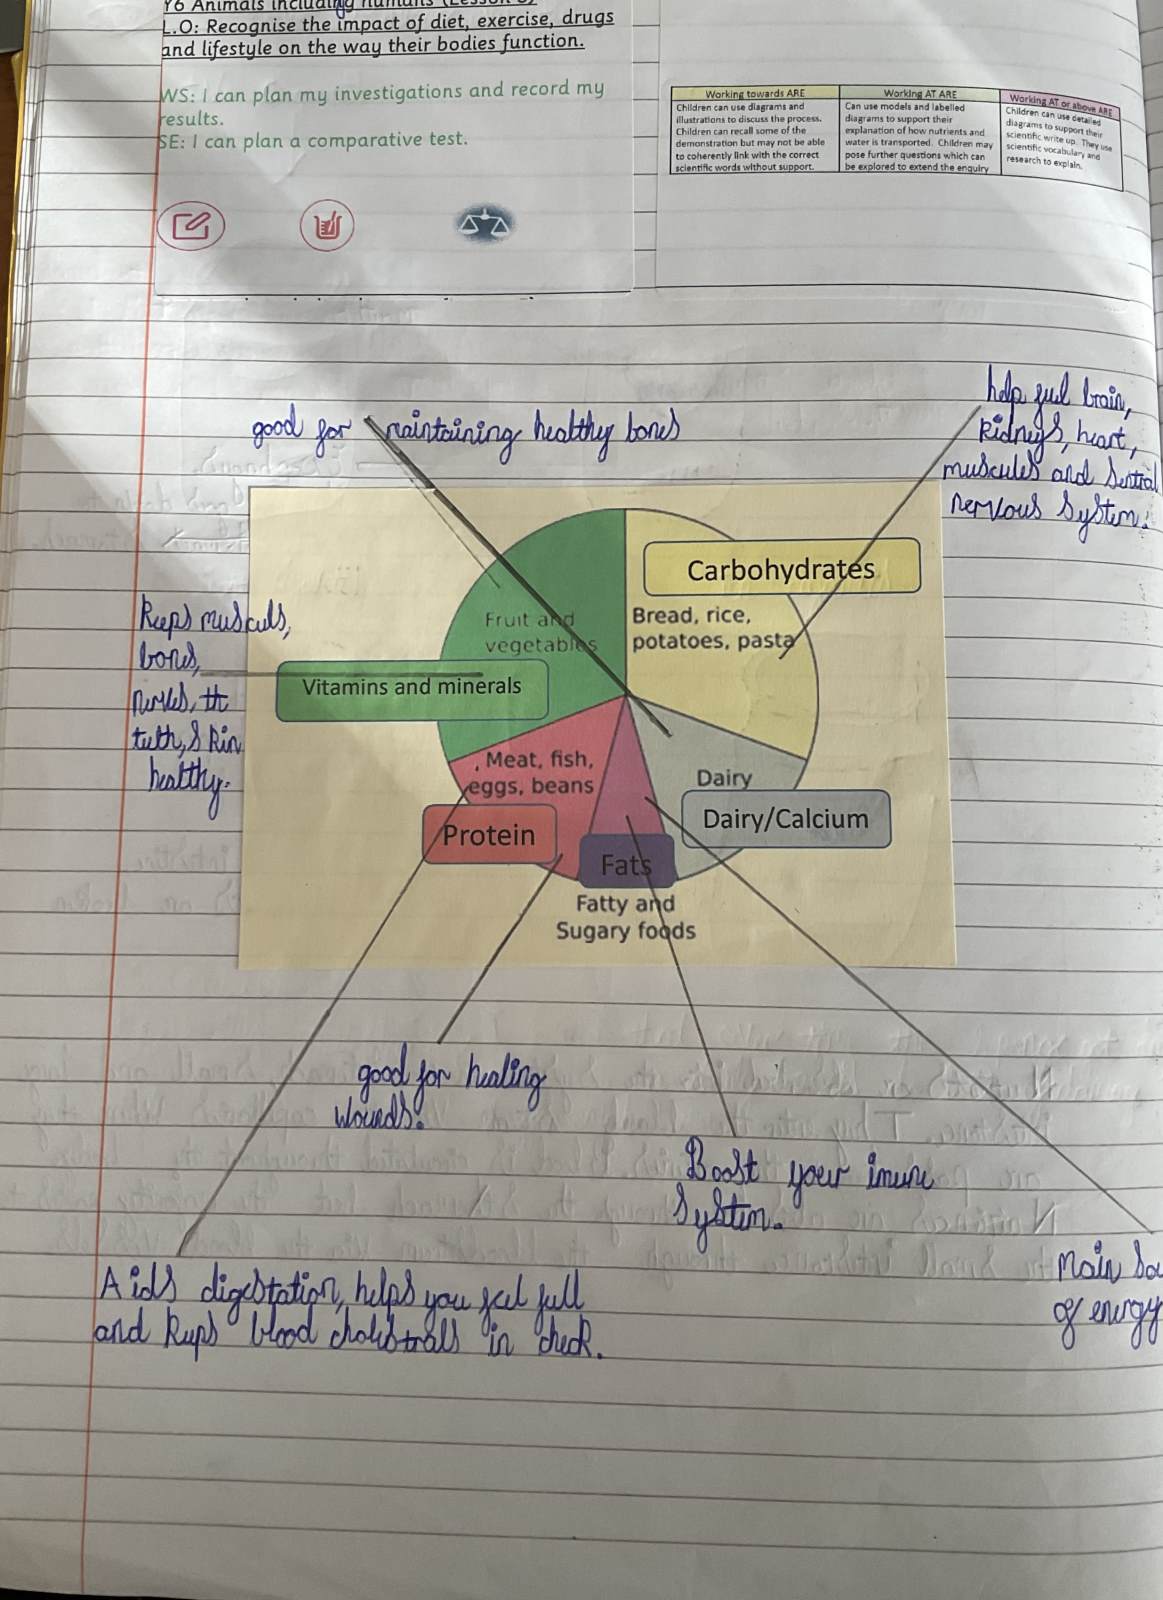 Y6 Animals including humans (Lesson
L.O: Recognise the impact of diet, exercise, drugs
and lifestyle on the way their bodies function.
WS: I can plan my investigations and record my
results.
SE: I can plan a comparative test.
Working towards ARE
Children can use diagrams and
illustrations to discuss the process.
Children can recall some of the
demonstration but may not be able
to coherently link with the correct
scientific words without support.
Working AT ARE
Can use models and labelled
diagrams to support their
explanation of how nutrients and
water is transported. Children may
pose further questions which can
be explored to extend the enquiry
Working AT or above ARE
Children can use detailed
diagrams to support their
scientific write up. They use
scientific vocabulary and
research to explain.
good for maintaining healthy bones
help fuel brain,
kidneys, heart,
muscules and sentral
nervous system.
Carbohydrates
Bread, rice,
potatoes, pasta
Fruit and
vegetables
Keeps musculs,
bones,
nerves, th
teeth, skin
healthy.
Vitamins and minerals
Meat, fish,
eggs, beans
Protein
Dairy
Dairy/Calcium
Fats
Fatty and
Sugary foods
good for healing
wounds.
Boost your imune
system.
Main so
of energy
Aids digestation, helps you feel full
and keeps blood cholestralls in check.